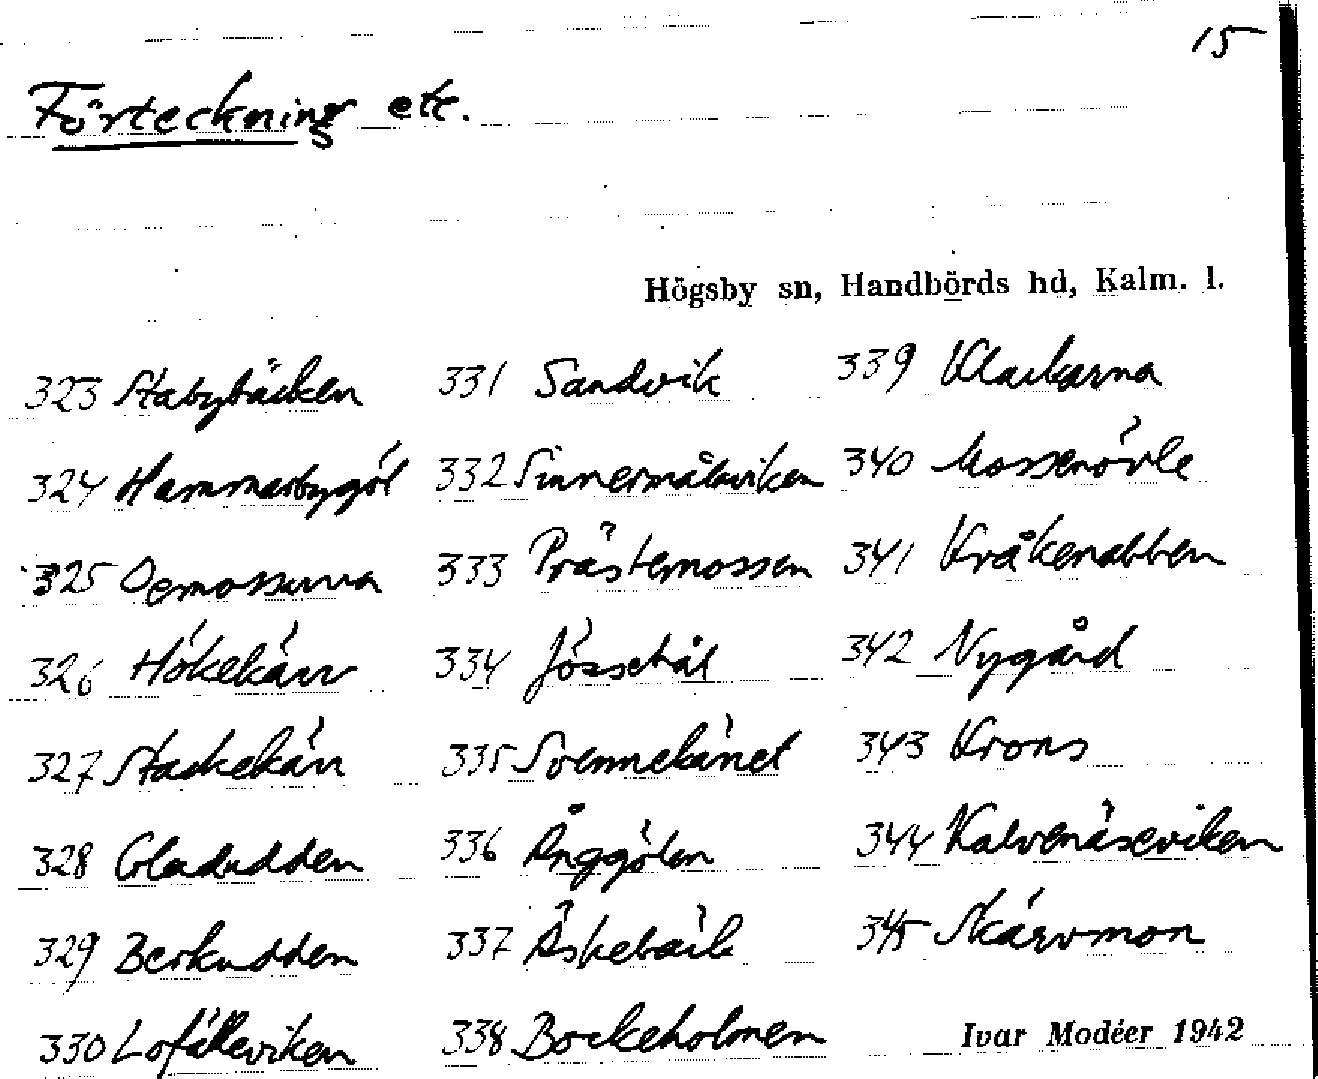 15
Förteckning etc.
Högsby sn, Handbörds hd, Kalm. l.
323 Stabybäcken
324 Hammarbygöl
325 Oemossarna
326 Hökekärr
327 Stackekärr
328 Gladudden
329 Berkudden
330 Lofälleviken
331 Sandvik
332 Sinnermålaviken
333 Prästemossen
334 Jössehål
335 Svennekärret
336 Änggölen
337 Äskebäck
338 Bockeholmen
339 Klackarna
340 Mossenövle
341 Kråkenabben
342 Nygård
343 Krons
344 Kalvenäseviken
345 Skärvmon
Ivar Modéer 1942